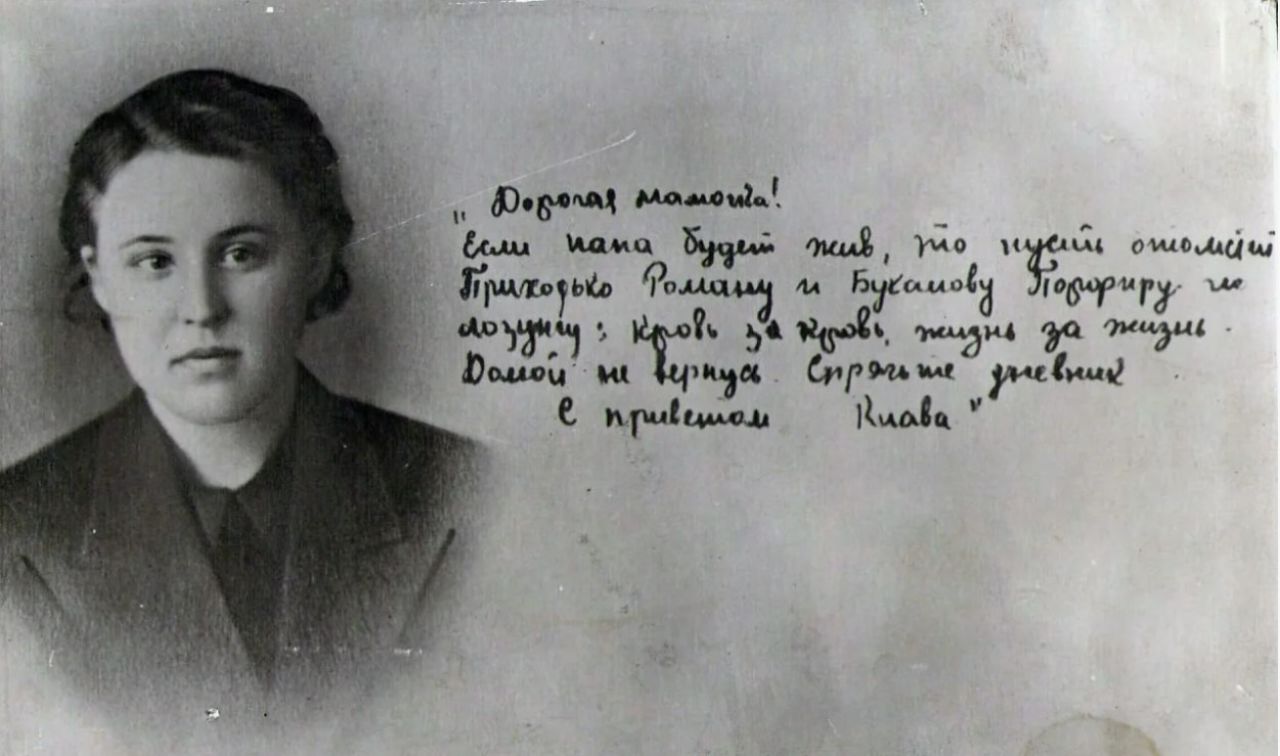 „Дорогая мамочка!
Если папа будет жив, то пусть отомстит
Приходько Роману и Букамову Порфиру по
лозунгу: кровь за кровь, жизнь за жизнь.
Домой не вернусь. Спрячьте дневник
С приветом Клава"